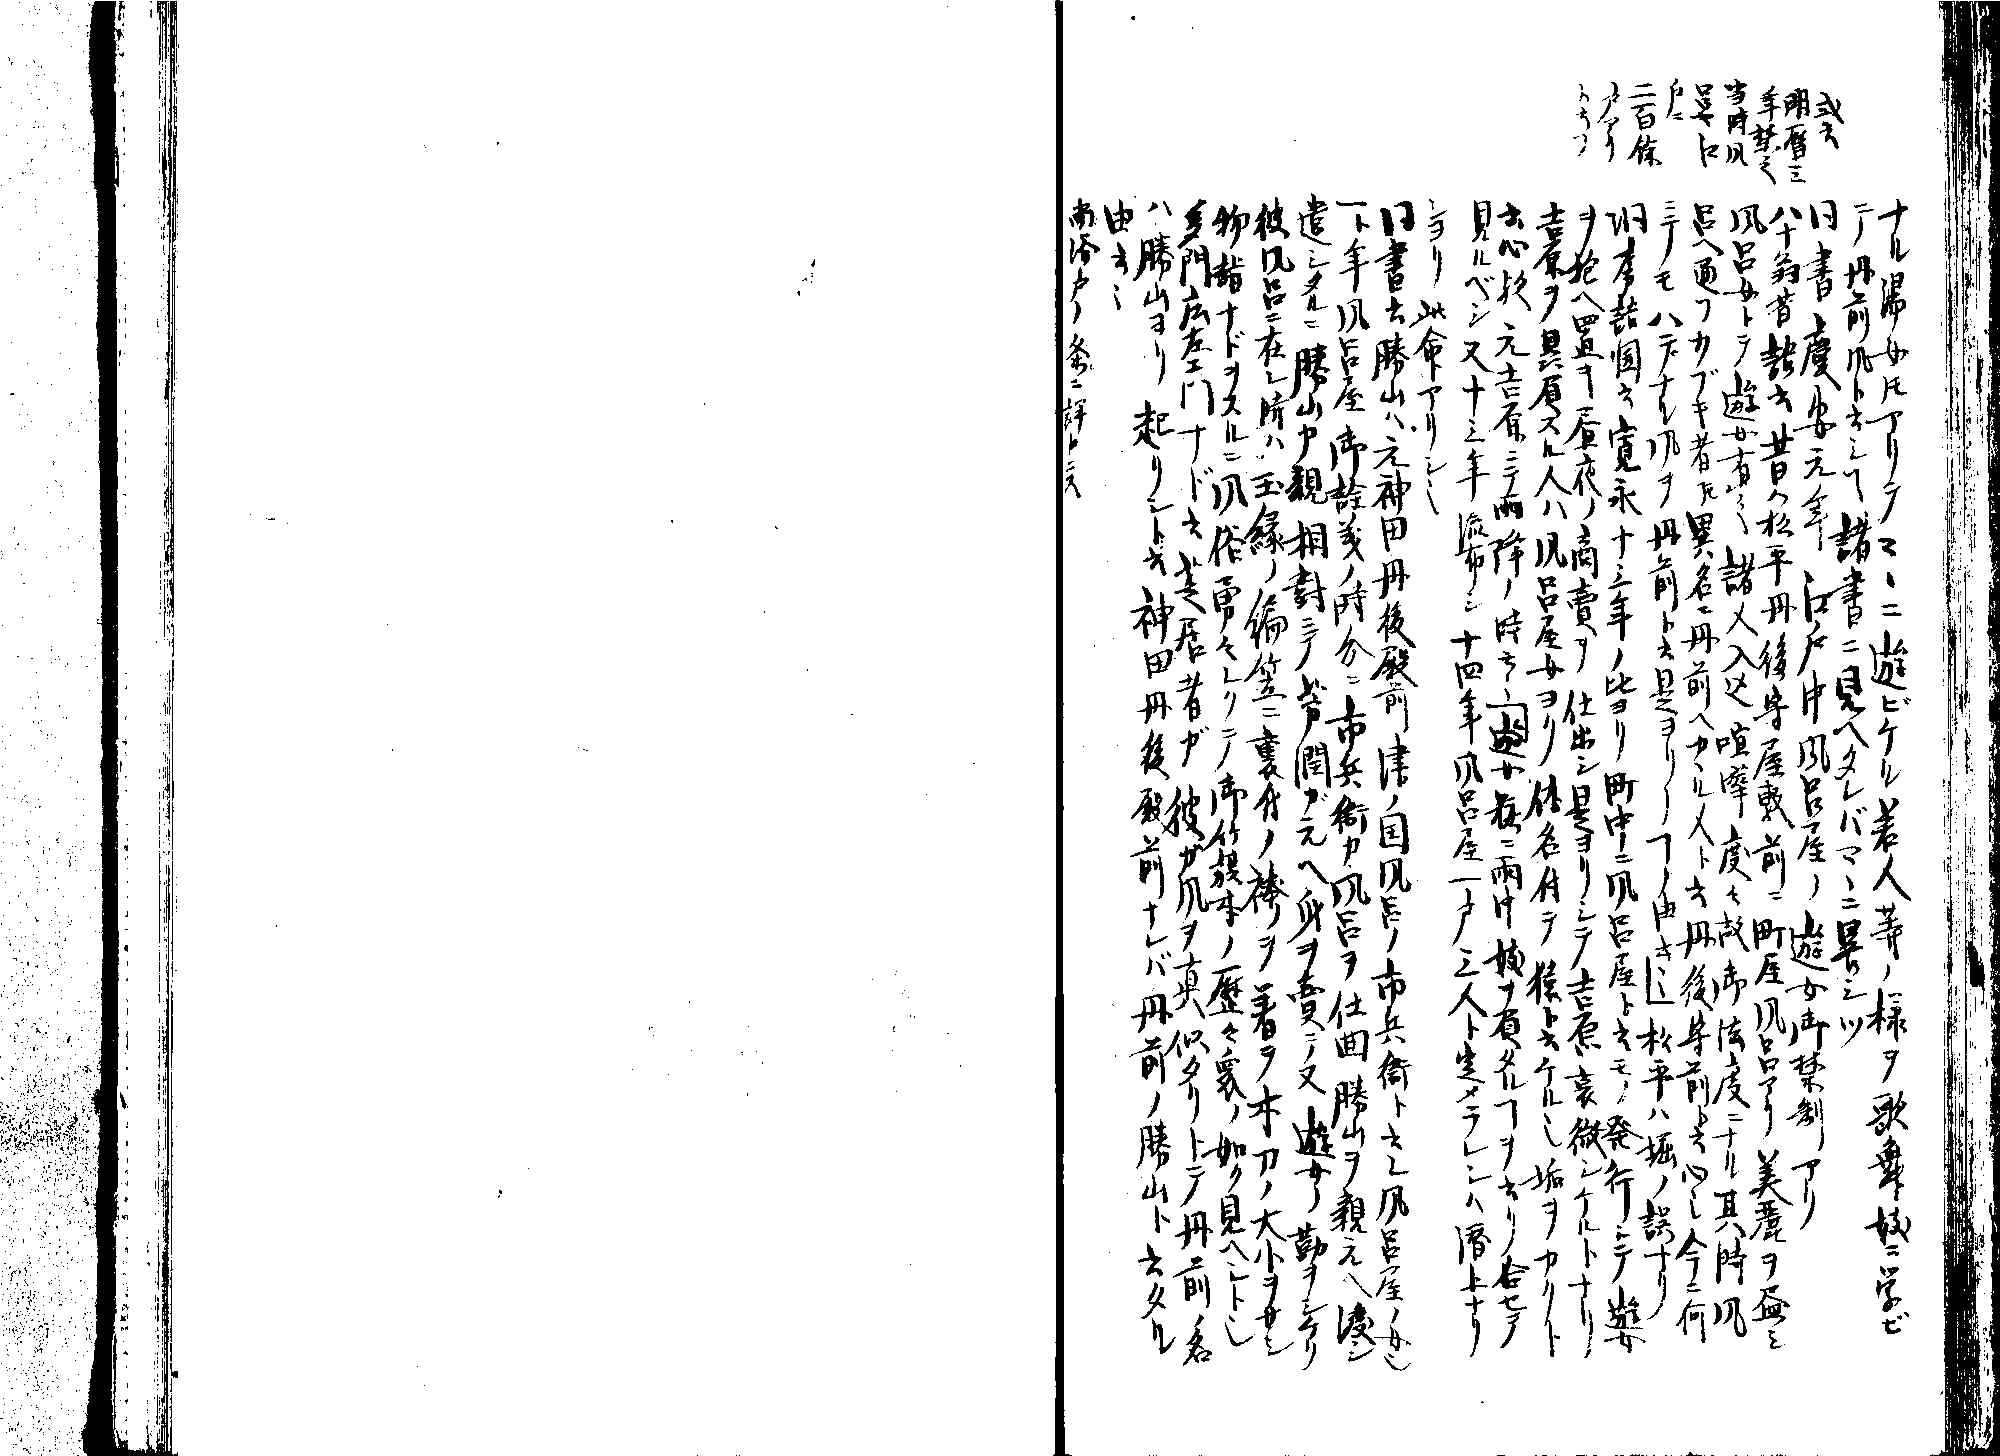 或云
明暦三
年禁之
当時風
呂や江
戸ニ
二百余
戸アリ
ト云フ
ナル湯女𪜈アリテコヽニ遊ビケル若人等ノ様ヲ歌舞妓ニ学ビ
テ丹前風ト云シ𠃊諸書ニ見ヘタレバコヽニ畧シツ
同書慶安元年江戸中風呂屋ノ遊女御禁制アリ
八十翁昔話云昔ハ松平丹後守屋敷前ニ町屋風呂アリ美麗ヲ尽シ
風呂女トテ遊女有之諸人入込喧嘩度々故御法度ニナル其時風
呂ヘ通フカブキ者𪜈異名ニ丹前ヘカヽル人ト云丹後守前ト云心也今ニ何
ニテモハデナル風ヲ丹前ト云是ヨリノヿノ由也松平ハ堀ノ誤ナリ
洞房語園云寛永十三年ノ比ヨリ町中ニ風呂屋ト云モノ発行シテ遊女
ヲ抱ヘ置キ昼夜ノ商賣ヲ仕出シ是ヨリシテ吉原衰微シケルトナリ
吉原ヲ贔屓スル人ハ風呂屋女ヨリ ... 名付テ猿ト云ケル也垢ヲカクト
云心歟元吉原ニテ雨降ノ時 ... 遊女 ... 雨中 ... ヲ負タルヿヲ云リ合セテ
見ルベシ又十三年流布シ十四年風呂屋一戸ノ三人ト定メラレシハ潜上ナリ
シヨリ此命アリシ也
同書云勝山ハ元神田丹後殿前津ノ国風呂ノ市兵衛ト云シ風呂屋ノ女也
一ト年風呂屋御詮義ノ時分ニ市兵衛カ風呂ヲ仕囬勝山ヲ親元ヘ渡シ
遣シタルニ勝山カ親相対ニテ ... 潤ガ元ヘ身ヲ賣ニノ又遊女ノ勤ヲシケリ
彼風呂ニ在シ時ハ玉縁ノ編笠ニ裏付ノ袴ヲ着テ木刀ノ大小ヲサシ
物詣ナドヲスルニ風俗 ... テ御 ... 旗本ノ歴々衆ノ如ク見ヘシト也
多門庄左エ門ナド云芝居者ガ彼ガ風ヲ真似タリトテ丹前ノ名
ハ勝山ヨリ起リシト云神田丹後殿前ナレバ丹前ノ勝山ト云タル
由云々
尚浴戸ノ条ニ詳ニス